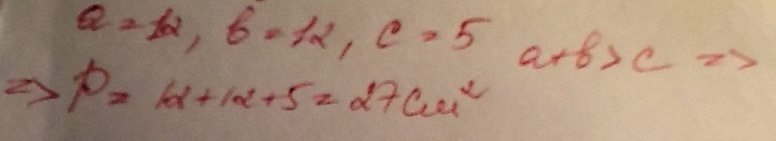 a = 12, b = 12, c = 5 a+b>c =>
=> P = 12+12+5 = 27 cm²